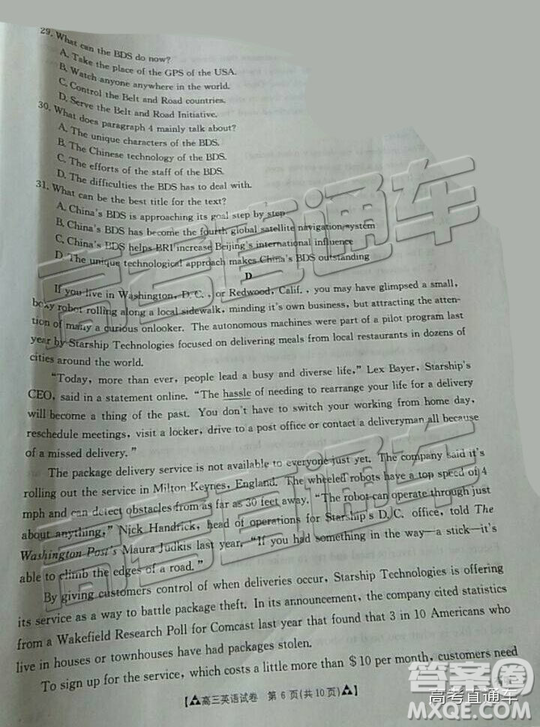 29. What can the BDS do now?
A. Take the place of the GPS of the USA.
B. Watch anyone anywhere in the world.
C. Control the Belt and Road countries.
D. Serve the Belt and Road Initiative.
30. What does paragraph 4 mainly talk about?
A. The unique characters of the BDS.
B. The Chinese technology of the BDS.
C. The efforts of the staff of the BDS.
D. The difficulties the BDS has to deal with.
31. What can be the best title for the text?
A. China's BDS is approaching its goal step by step
B. China's BDS has become the fourth global satellite navigation system
C. China's BDS helps BRI increase Beijing's international influence
D. The unique technological approach makes China's BDS outstanding
D
If you live in Washington, D. C. , or Redwood, Calif. , you may have glimpsed a small,
boxy robot rolling along a local sidewalk, minding it's own business, but attracting the atten-
tion of many a curious onlooker. The autonomous machines were part of a pilot program last
year by Starship Technologies focused on delivering meals from local restaurants in dozens of
cities around the world.
"Today, more than ever, people lead a busy and diverse life," Lex Bayer, Starship's
CEO, said in a statement online. "The hassle of needing to rearrange your life for a delivery
will become a thing of the past. You don't have to switch your working from home day,
reschedule meetings, visit a locker, drive to a post office or contact a deliveryman all because
of a missed delivery. "
The package delivery service is not available to everyone just yet. The company said it's
rolling out the service in Milton Keynes, England. The wheeled robots have a top speed of 4
mph and can detect obstacles from as far as 30 feet away. "The robot can operate through just
about anything," Nick Handrick, head of operations for Starship's D. C. office, told The
Washington Post's Maura Judkis last year, "If you had something in the way—a stick—it's
able to climb the edges of a road. "
By giving customers control of when deliveries occur, Starship Technologies is offering
its service as a way to battle package theft. In its announcement, the company cited statistics
from a Wakefield Research Poll for Comcast last year that found that 3 in 10 Americans who
live in houses or townhouses have had packages stolen.
To sign up for the service, which costs a little more than $ 10 per month, customers need
【高三英语试卷 第 6 页(共 10 页)】
高考直通车
高考直通车
高考直通车
高考直通车
MXQE.COM